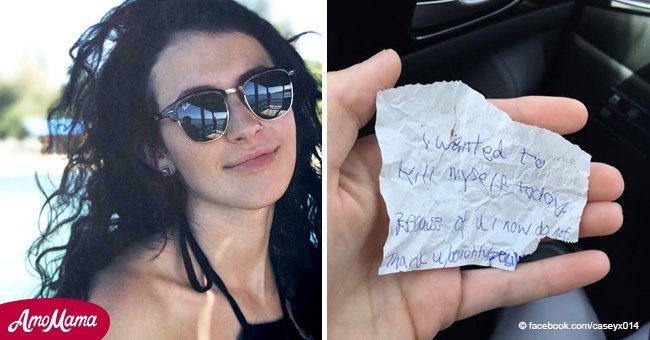 i wanted to
kill myself today.
Because of u I now do not
thank u, beautiful
AmoMama
© facebook.com/caseyx014